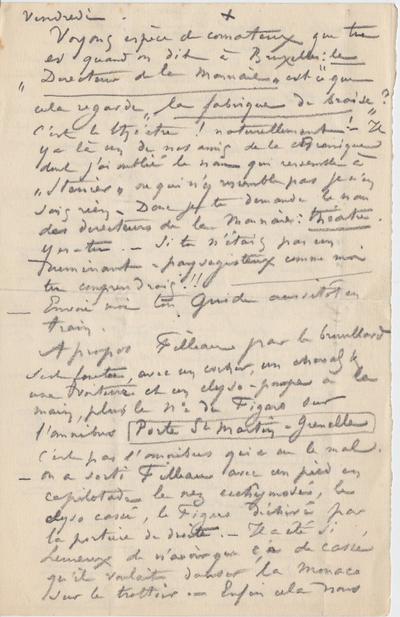 Vendredi.
Voyons espèce de comateux que tu
es quand on dit à Bruxelles: le
"Directeur de la Monnaie" est ce que
cela regarde "la fabrique de braise"?
C'est le théâtre! naturellement! - Il
y a là un de nos amis de la chronique
dont j'ai oublié le nom qui ressemble à
"Stenier" ou qui n'y ressemble pas je n'en
sais rien - Donc je te demande le nom
des directeurs de la Monnaie: théatre.
y es-tu. - Si tu n'étais pas un
ruminant - paysagisteux comme moi
tu comprendrais!!!
- Envoie moi ton Guide aussitot en
train.
A propos Filleau par le brouillard
s'est foutu avec un cocher, un cheval &
une voiture et un clyso-pompe à la
main, plus le No du Figaro sur
l'omnibus Porte St Martin - Grenelle
c'est pas l'omnibus qui a eu le mal.
- on a sorti Filleau avec un pied en
capilotade le nez ecchymosé, le
clyso cassé, le Figaro déchiré par
la portière de droite. - Il a été si
heureux de n'avoir que ça de cassé
qu'il voulait danser la Monaco
sur le trottoir. - Enfin cela nous